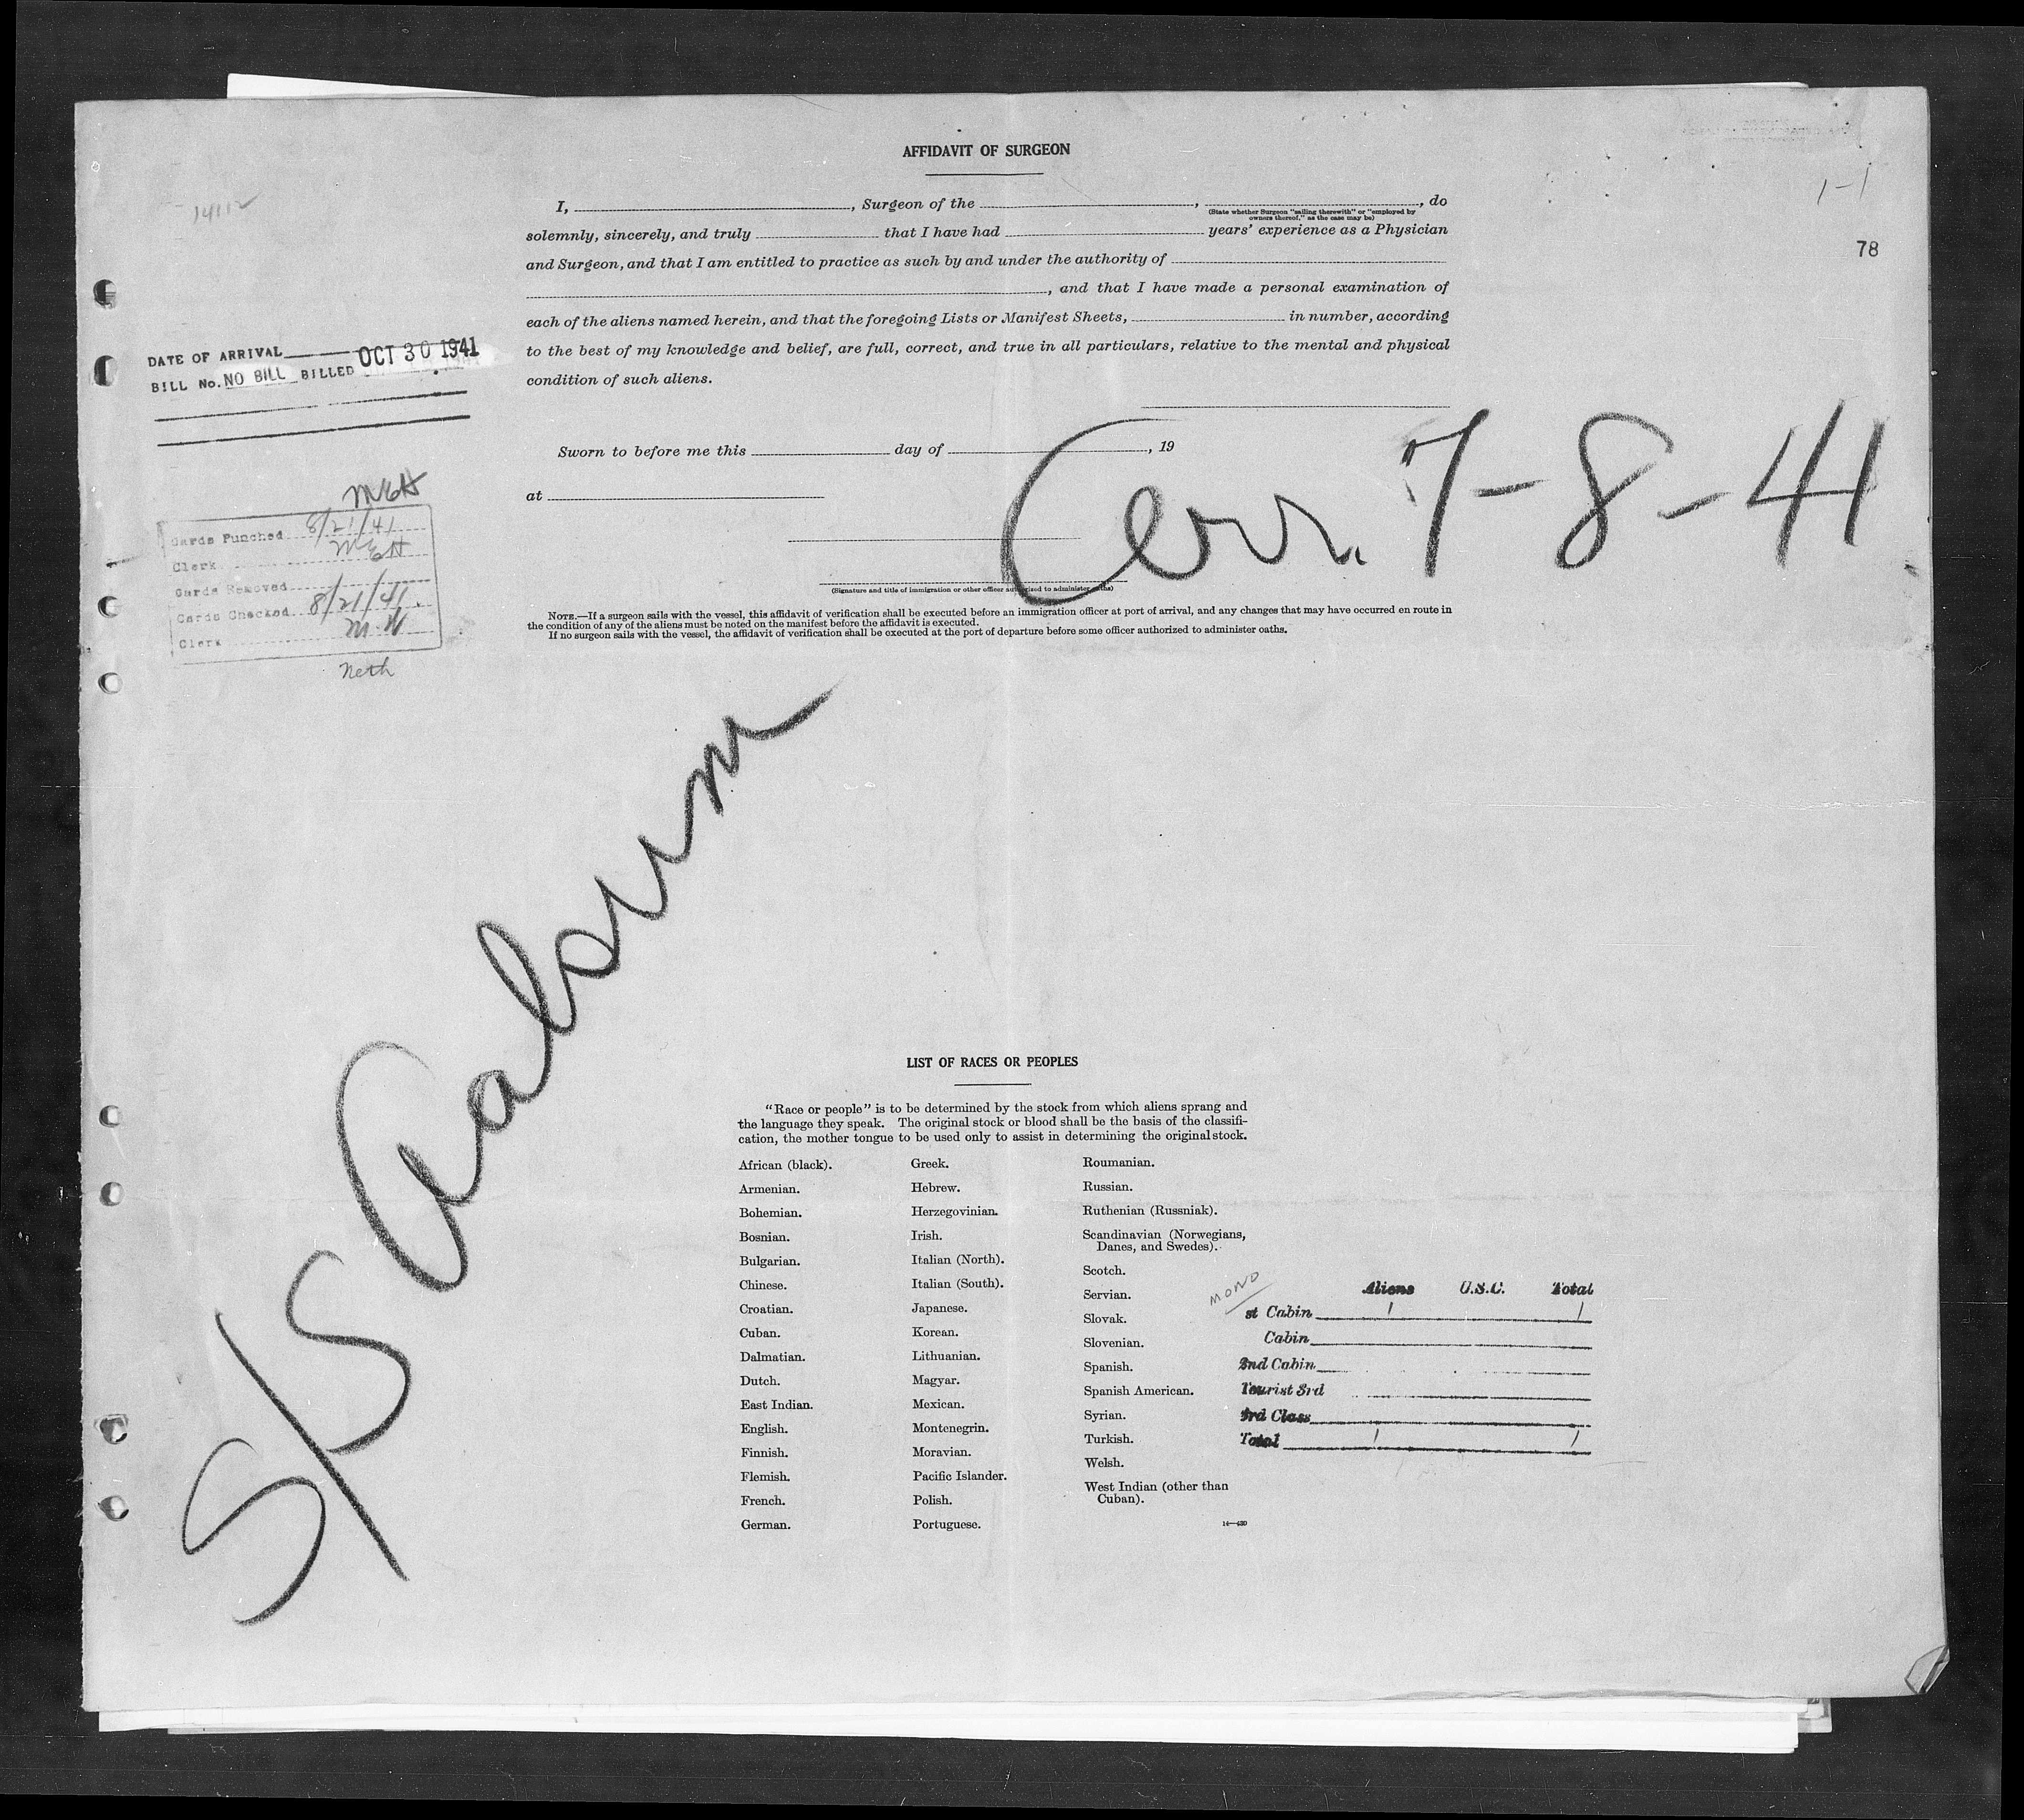 AFFIDAVIT OF SURGEON
1-1
14112
I, , Surgeon of the , , do
(State whether Surgeon "sailing therewith" or "employed by
owners thereof," as the case may be)
solemnly, sincerely, and truly that I have had years' experience as a Physician
78
and Surgeon, and that I am entitled to practice as such by and under the authority of
, and that I have made a personal examination of
each of the aliens named herein, and that the foregoing Lists or Manifest Sheets, in number, according
to the best of my knowledge and belief, are full, correct, and true in all particulars, relative to the mental and physical
condition of such aliens.
DATE OF ARRIVAL OCT 30 1941
BILL No. NO BILL BILLED
Sworn to before me this day of , 19
at
Arr. 7-8-41
(Signature and title of immigration or other officer authorized to administer oaths)
Cards Punched 8/21/41
Clerk
Cards Removed
Cards Checked 8/21/41
Clerk
Neth
NOTE.—If a surgeon sails with the vessel, this affidavit of verification shall be executed before an immigration officer at port of arrival, and any changes that may have occurred en route in
the condition of any of the aliens must be noted on the manifest before the affidavit is executed.
If no surgeon sails with the vessel, the affidavit of verification shall be executed at the port of departure before some officer authorized to administer oaths.
S/S Aalsum
LIST OF RACES OR PEOPLES
"Race or people" is to be determined by the stock from which aliens sprang and
the language they speak. The original stock or blood shall be the basis of the classifi-
cation, the mother tongue to be used only to assist in determining the original stock.
African (black).
Armenian.
Bohemian.
Bosnian.
Bulgarian.
Chinese.
Croatian.
Cuban.
Dalmatian.
Dutch.
East Indian.
English.
Finnish.
Flemish.
French.
German.
Greek.
Hebrew.
Herzegovinian.
Irish.
Italian (North).
Italian (South).
Japanese.
Korean.
Lithuanian.
Magyar.
Mexican.
Montenegrin.
Moravian.
Pacific Islander.
Polish.
Portuguese.
Roumanian.
Russian.
Ruthenian (Russniak).
Scandinavian (Norwegians,
Danes, and Swedes).
Scotch.
Servian.
Slovak.
Slovenian.
Spanish.
Spanish American.
Syrian.
Turkish.
Welsh.
West Indian (other than
Cuban).
14—430
MONO
Aliens U.S.C. Total
st Cabin 1 1
Cabin
2nd Cabin
Tourist 3rd
3rd Class
Total 1 1